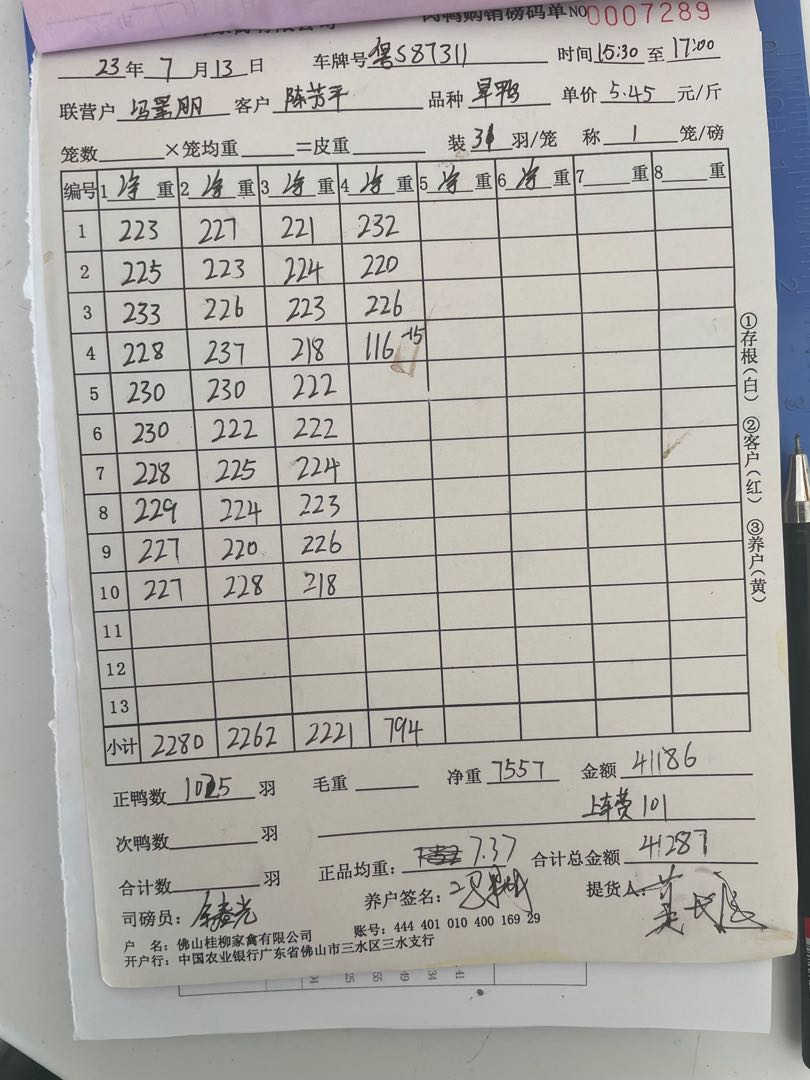 肉鸭购销磅码单 NO 0007289
23年 7月 13日 车牌号 粤S87311 时间 15:30 至 17:00
联营户 客户 陈芳平 品种 旱鸭 单价 5.45 元/斤
笼数 ×笼均重 =皮重 装 31 羽/笼 称 1 笼/磅
编号 1 净 重 2 净 重 3 净 重 4 净 重 5 净 重 6 净 重 7 重 8 重
1 223 227 221 232
2 225 223 224 220
3 233 226 223 226
4 228 237 218 116 -15
5 230 230 222
6 230 222 222
7 228 225 224
8 229 224 223
9 227 220 226
10 227 228 218
11
12
13
小计 2280 2262 2221 794
正鸭数 1025 羽 毛重 净重 7557 金额 41186
上车费 101
次鸭数 羽
合计数 羽 正品均重: 7.37 合计总金额 41287
司磅员: 养户签名: 提货人:
户 名: 佛山桂柳家禽有限公司 账号: 444 401 010 400 169 29
开户行: 中国农业银行广东省佛山市三水区三水支行
①存根(白) ②客户(红) ③养户(黄)